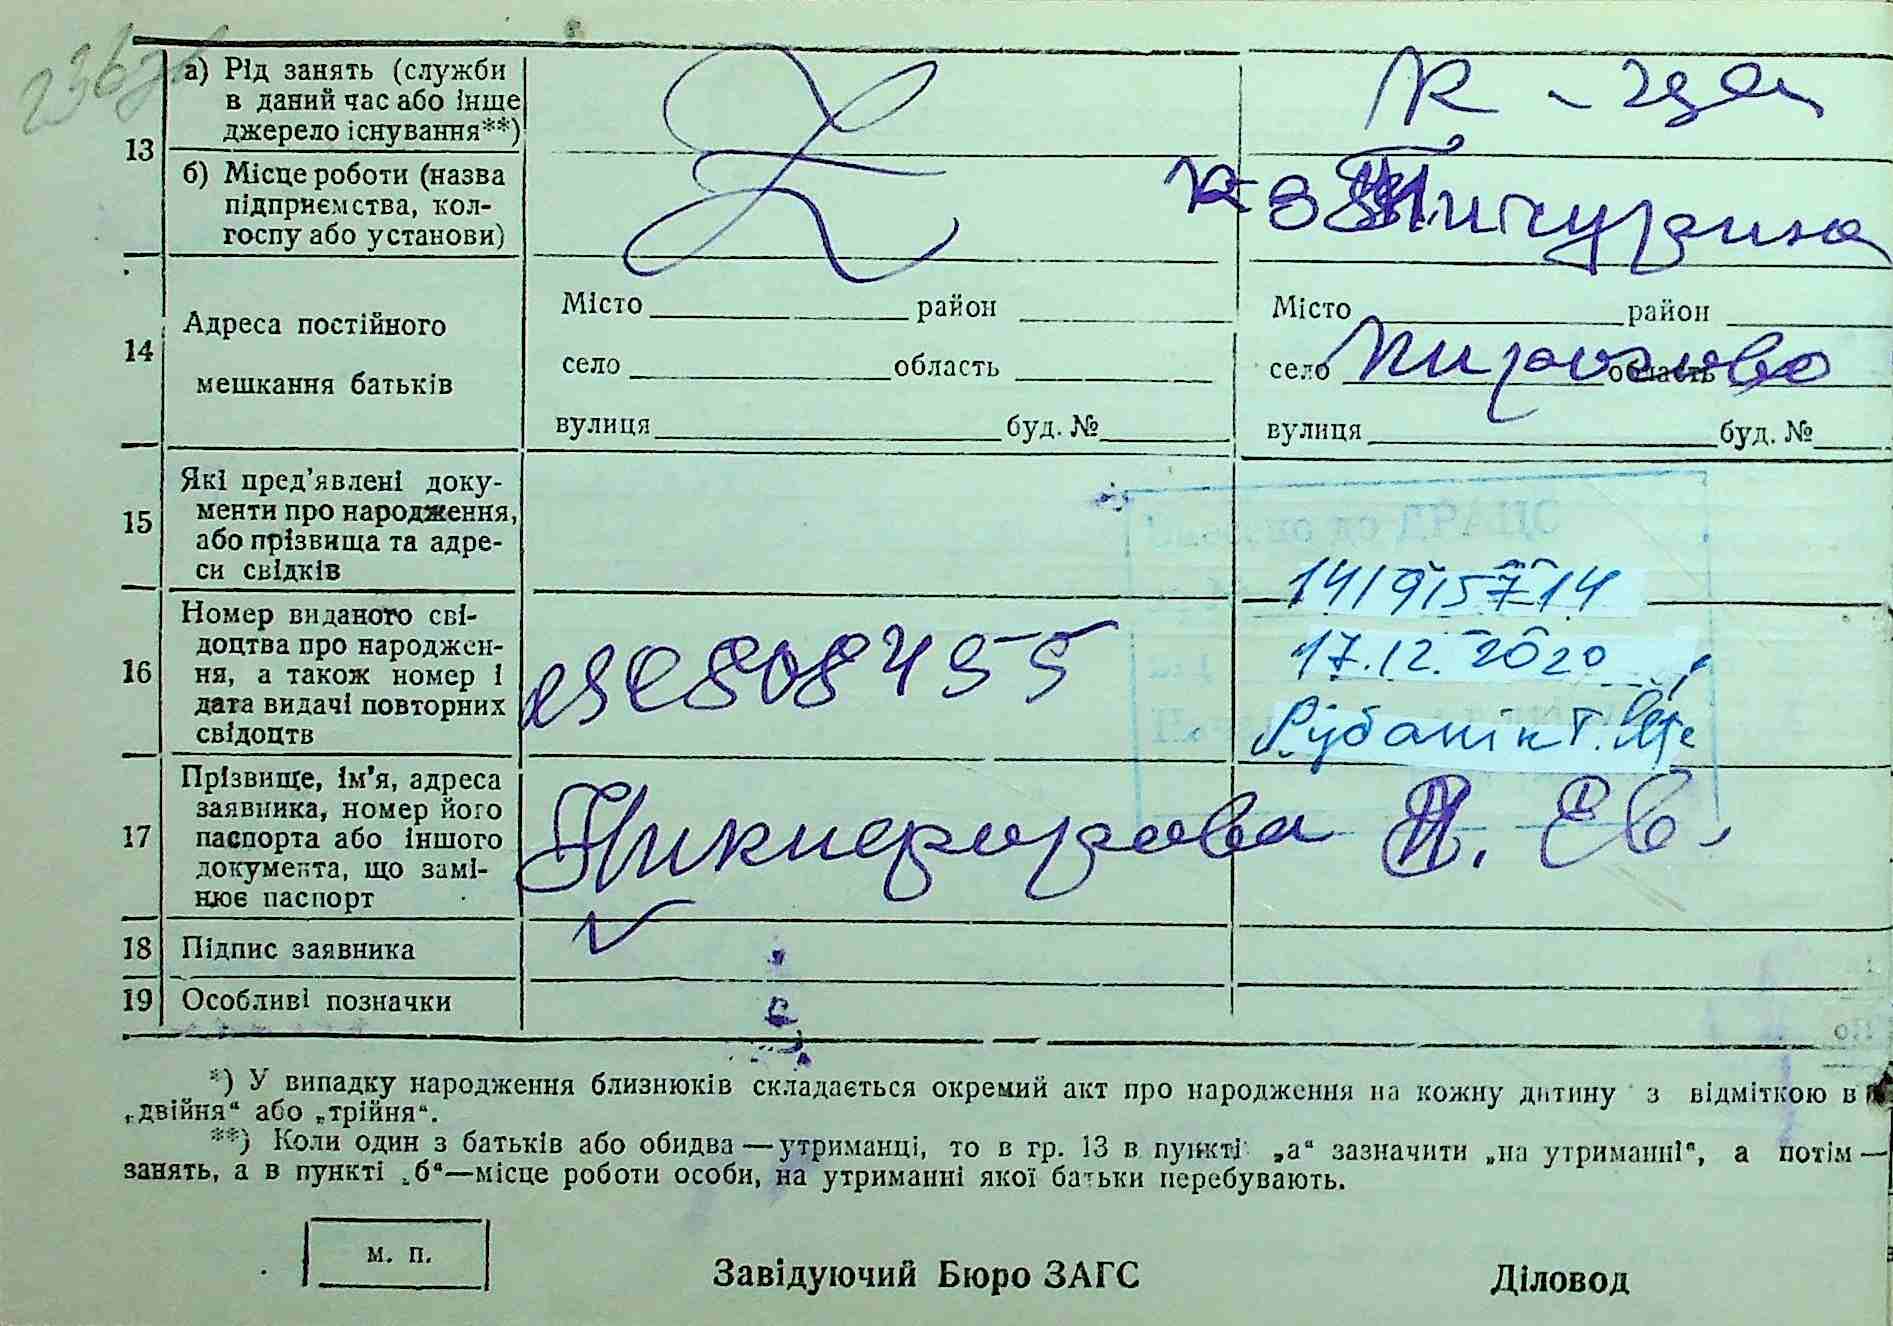 13
а) Рід занять (служби
в даний час або інше
джерело існування**)
к-ця
б) Місце роботи (назва
підприємства, кол-
госпу або установи)
к-з Мичурина
14
Адреса постійного
мешкання батьків
Місто район
село область
вулиця буд. №
Місто район
село Пирогово область
вулиця буд. №
15
Які пред'явлені доку-
менти про народження,
або прізвища та адре-
си свідків
16
Номер виданого сві-
доцтва про народжен-
ня, а також номер і
дата видачі повторних
свідоцтв
808455
141915714
17.12.2020
Рубанік Т.
17
Прізвище, ім'я, адреса
заявника, номер його
паспорта або іншого
документа, що замі-
нює паспорт
Никифорова П. Ев.
18
Підпис заявника
19
Особливі позначки
*) У випадку народження близнюків складається окремий акт про народження на кожну дитину з відміткою в
„двійня“ або „трійня“.
**) Коли один з батьків або обидва — утриманці, то в гр. 13 в пункті „а“ зазначити „на утриманні“, а потім —
занять, а в пункті „б“ — місце роботи особи, на утриманні якої батьки перебувають.
м. п.
Завідуючий Бюро ЗАГС
Діловод